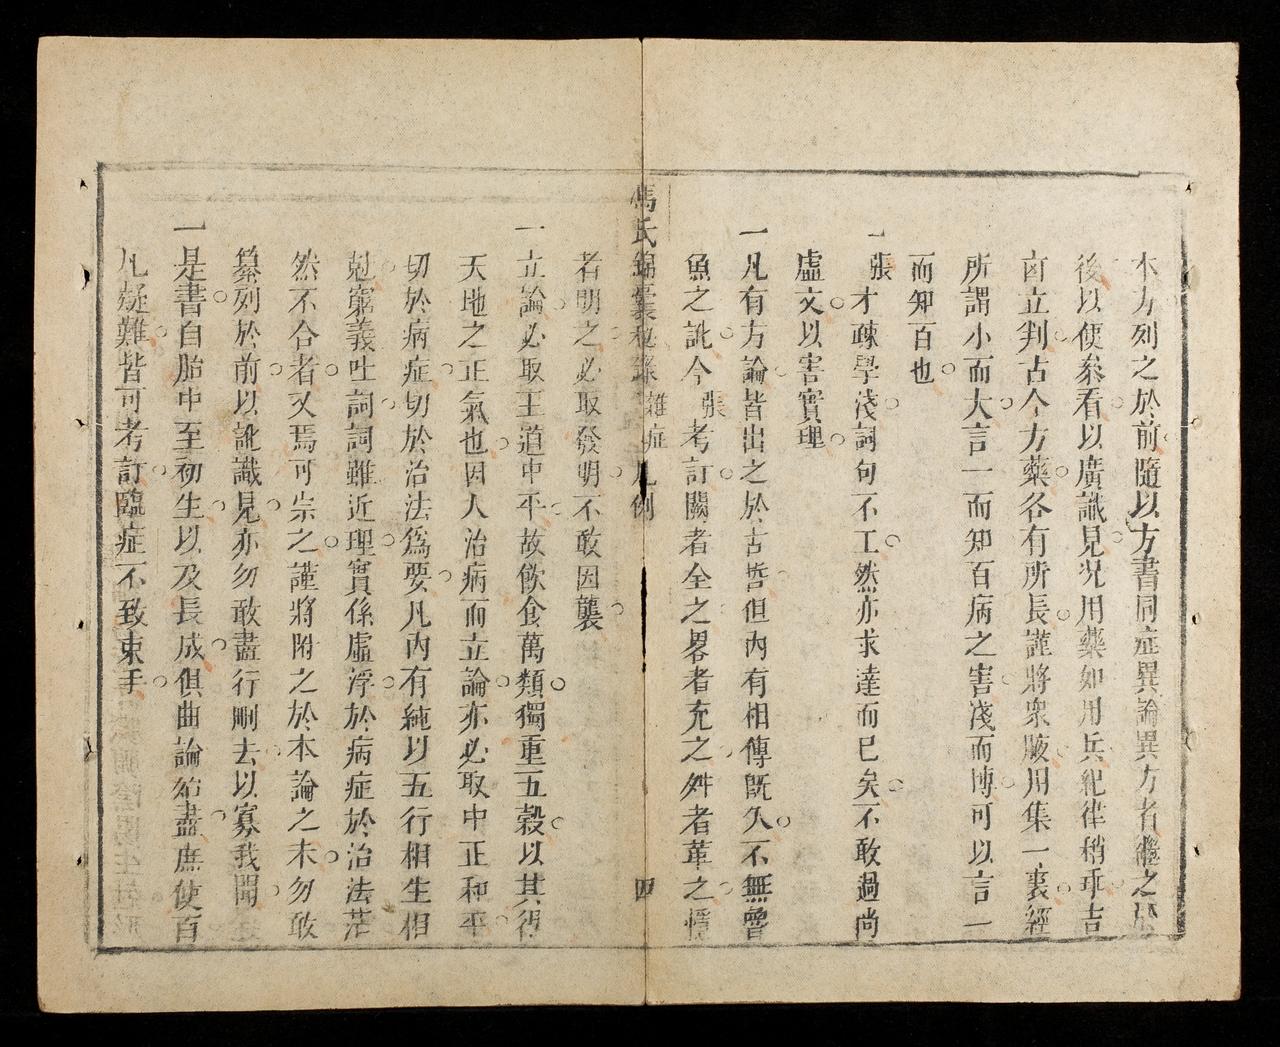 本方列之於前隨以方書同症異論異方者繼之於
後以便叅看以廣識見况用藥如用兵紀律稍乖吉
凶立判古今方藥各有所長謹將衆腋用集一裘經
所謂小而大言一而知百病之害淺而博可以言一
而知百也
一張才疎學淺詞句不工然亦求達而已矣不敢過尚
虛文以害實理
一凡有方論皆出之於古哲但內有相傳旣久不無魯
魚之訛今張考訂闕者全之畧者充之舛者革之
馮氏錦囊秘錄 雜症 凡例 四
者明之必取發明不敢因襲
一立論必取王道中平故飲食萬類獨重五穀以其得
天地之正氣也因人治病而立論亦必取中正和平
切於病症切於治法爲要凡內有純以五行相生相
尅窮義吐詞詞雖近理實係虛浮於病症於治法茫
然不合者又焉可崇之謹將附之於本論之末勿敢
纂列於前以訛識見亦勿敢盡行刪去以寡我聞
一是書自胎中至初生以及長成俱曲論始盡庶使百
凡疑難皆可考訂臨症不致束手